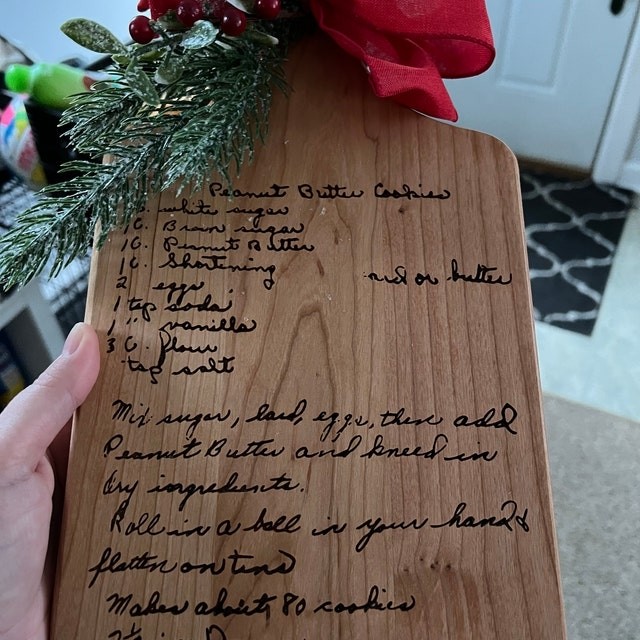 Peanut Butter Cookies
C. white sugar
1 C. Brun sugar
1 C. Peanut Butter
1 C. Shortening and or butter
2 eggs
1 tsp soda
1 " vanilla
3 C. flour
tsp salt
Mix sugar, lard, eggs, then add
Peanut Butter and kneed in
dry ingredients.
Roll in a ball in your hand &
flatten on tins
Makes about 80 cookies